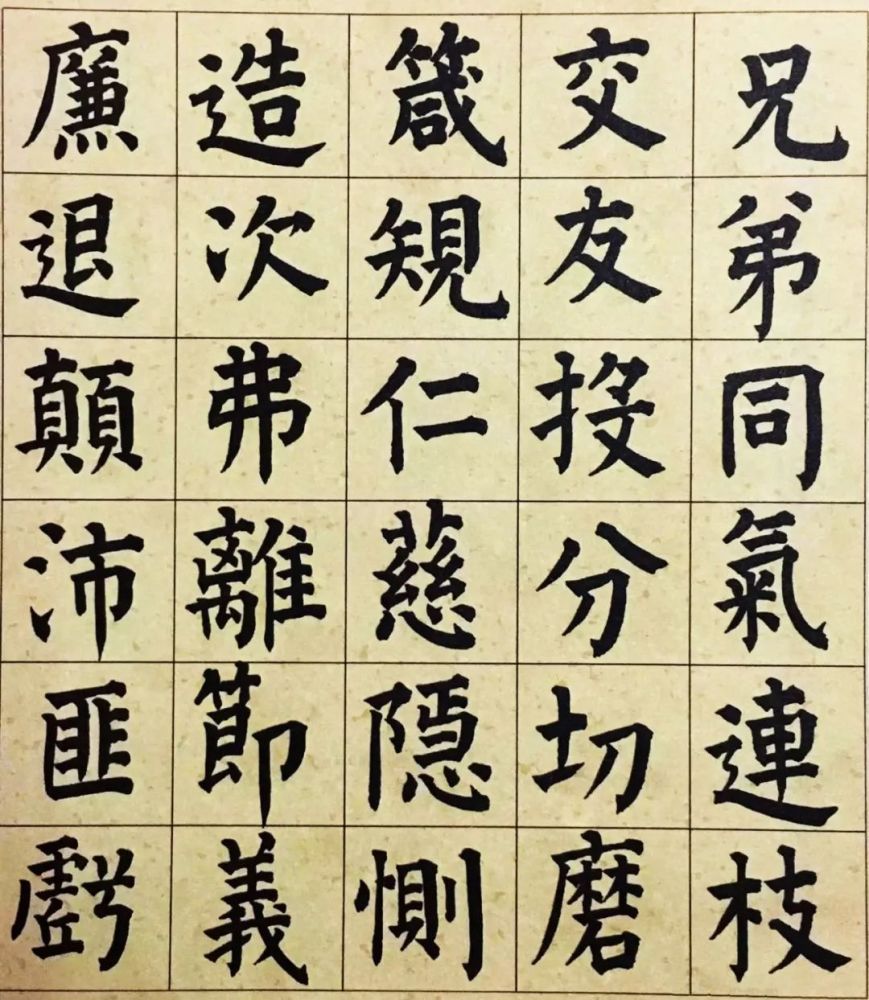 兄弟同氣連枝
交友投分切磨
箴規仁慈隱惻
造次弗離節義
廉退顛沛匪虧